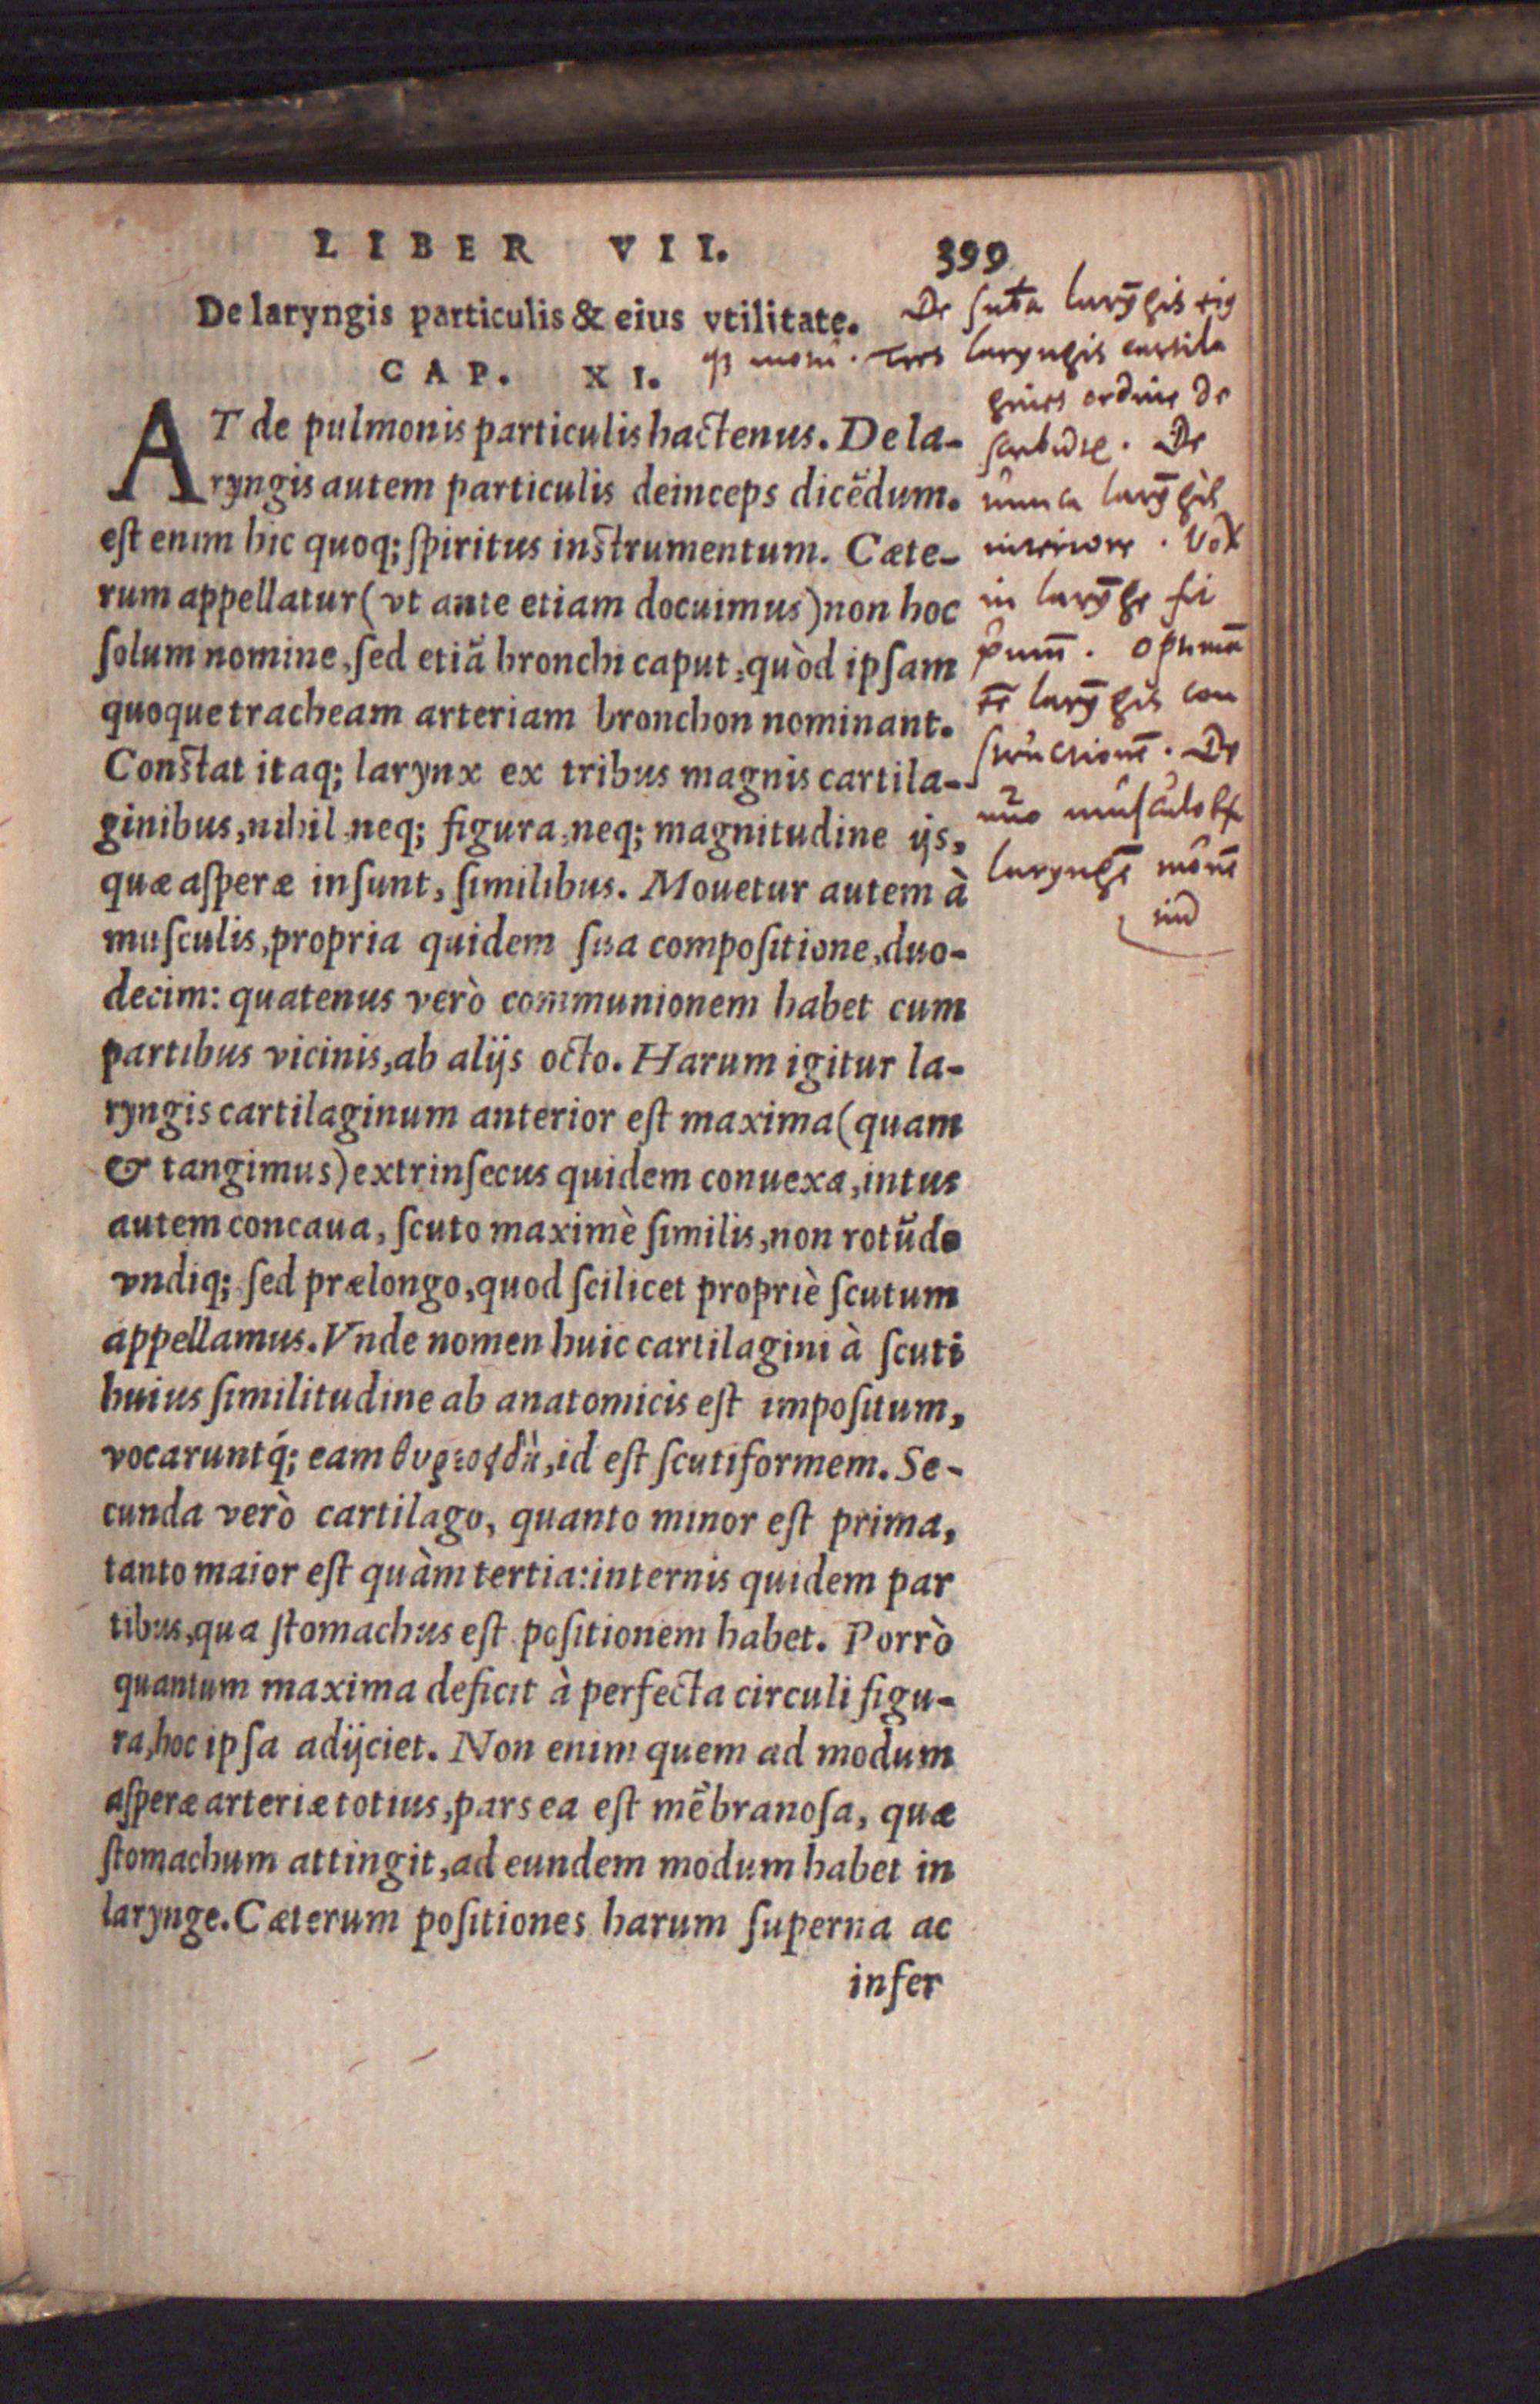 LIBER VII. 399
De laryngis particulis & eius vtilitate.
CAP. XI.
AT de pulmonis particulis hactenus. De la-
ryngis autem particulis deinceps dicēdum.
eſt enim hic quoq; ſpiritus inſtrumentum. Cæte-
rum appellatur (vt ante etiam docuimus) non hoc
ſolum nomine, ſed etiā bronchi caput, quòd ipſam
quoque tracheam arteriam bronchon nominant.
Conſtat itaq; larynx ex tribus magnis cartila-
ginibus, nihil neq; figura, neq; magnitudine ijs,
quæ aſperæ inſunt, ſimilibus. Mouetur autem à
muſculis, propria quidem ſua compoſitione, duo-
decim: quatenus verò communionem habet cum
partibus vicinis, ab alijs octo. Harum igitur la-
ryngis cartilaginum anterior eſt maxima (quam
& tangimus) extrinſecus quidem conuexa, intus
autem concaua, ſcuto maximè ſimilis, non rotūdo
vndiq; ſed prælongo, quod ſcilicet propriè ſcutum
appellamus. Vnde nomen huic cartilagini à ſcuti
huius ſimilitudine ab anatomicis eſt impoſitum,
vocaruntq́; eam id eſt ſcutiformem. Se-
cunda verò cartilago, quanto minor eſt prima,
tanto maior eſt quàm tertia: internis quidem par
tibus, qua ſtomachus eſt poſitionem habet. Porrò
quantum maxima deficit à perfecta circuli figu-
ra, hoc ipſa adijciet. Non enim quem ad modum
aſperæ arteriæ totius, pars ea eſt mēbranoſa, quæ
ſtomachum attingit, ad eundem modum habet in
larynge. Cæterum poſitiones harum ſuperna ac
infer
De larȳgis
Tres laryngis cartila
gines ordine de
De
larȳgis
interiore. Vox
in larȳge fit
larȳgis con
ſtructionē. De